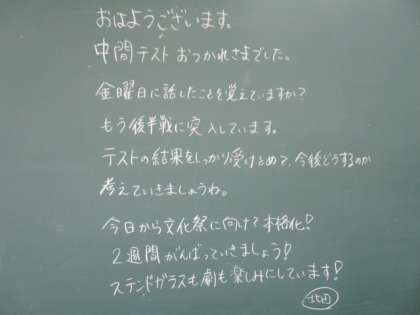 おはようございます。
中間テスト おつかれさまでした。
金曜日に話したことを覚えていますか？
もう後半戦に突入しています。
テストの結果をしっかり受けとめて、今後どうするのか
考えていきましょうね。
今日から文化祭に向けて本格化！
2週間がんばっていきましょう！
ステンドガラスも劇も楽しみにしています！